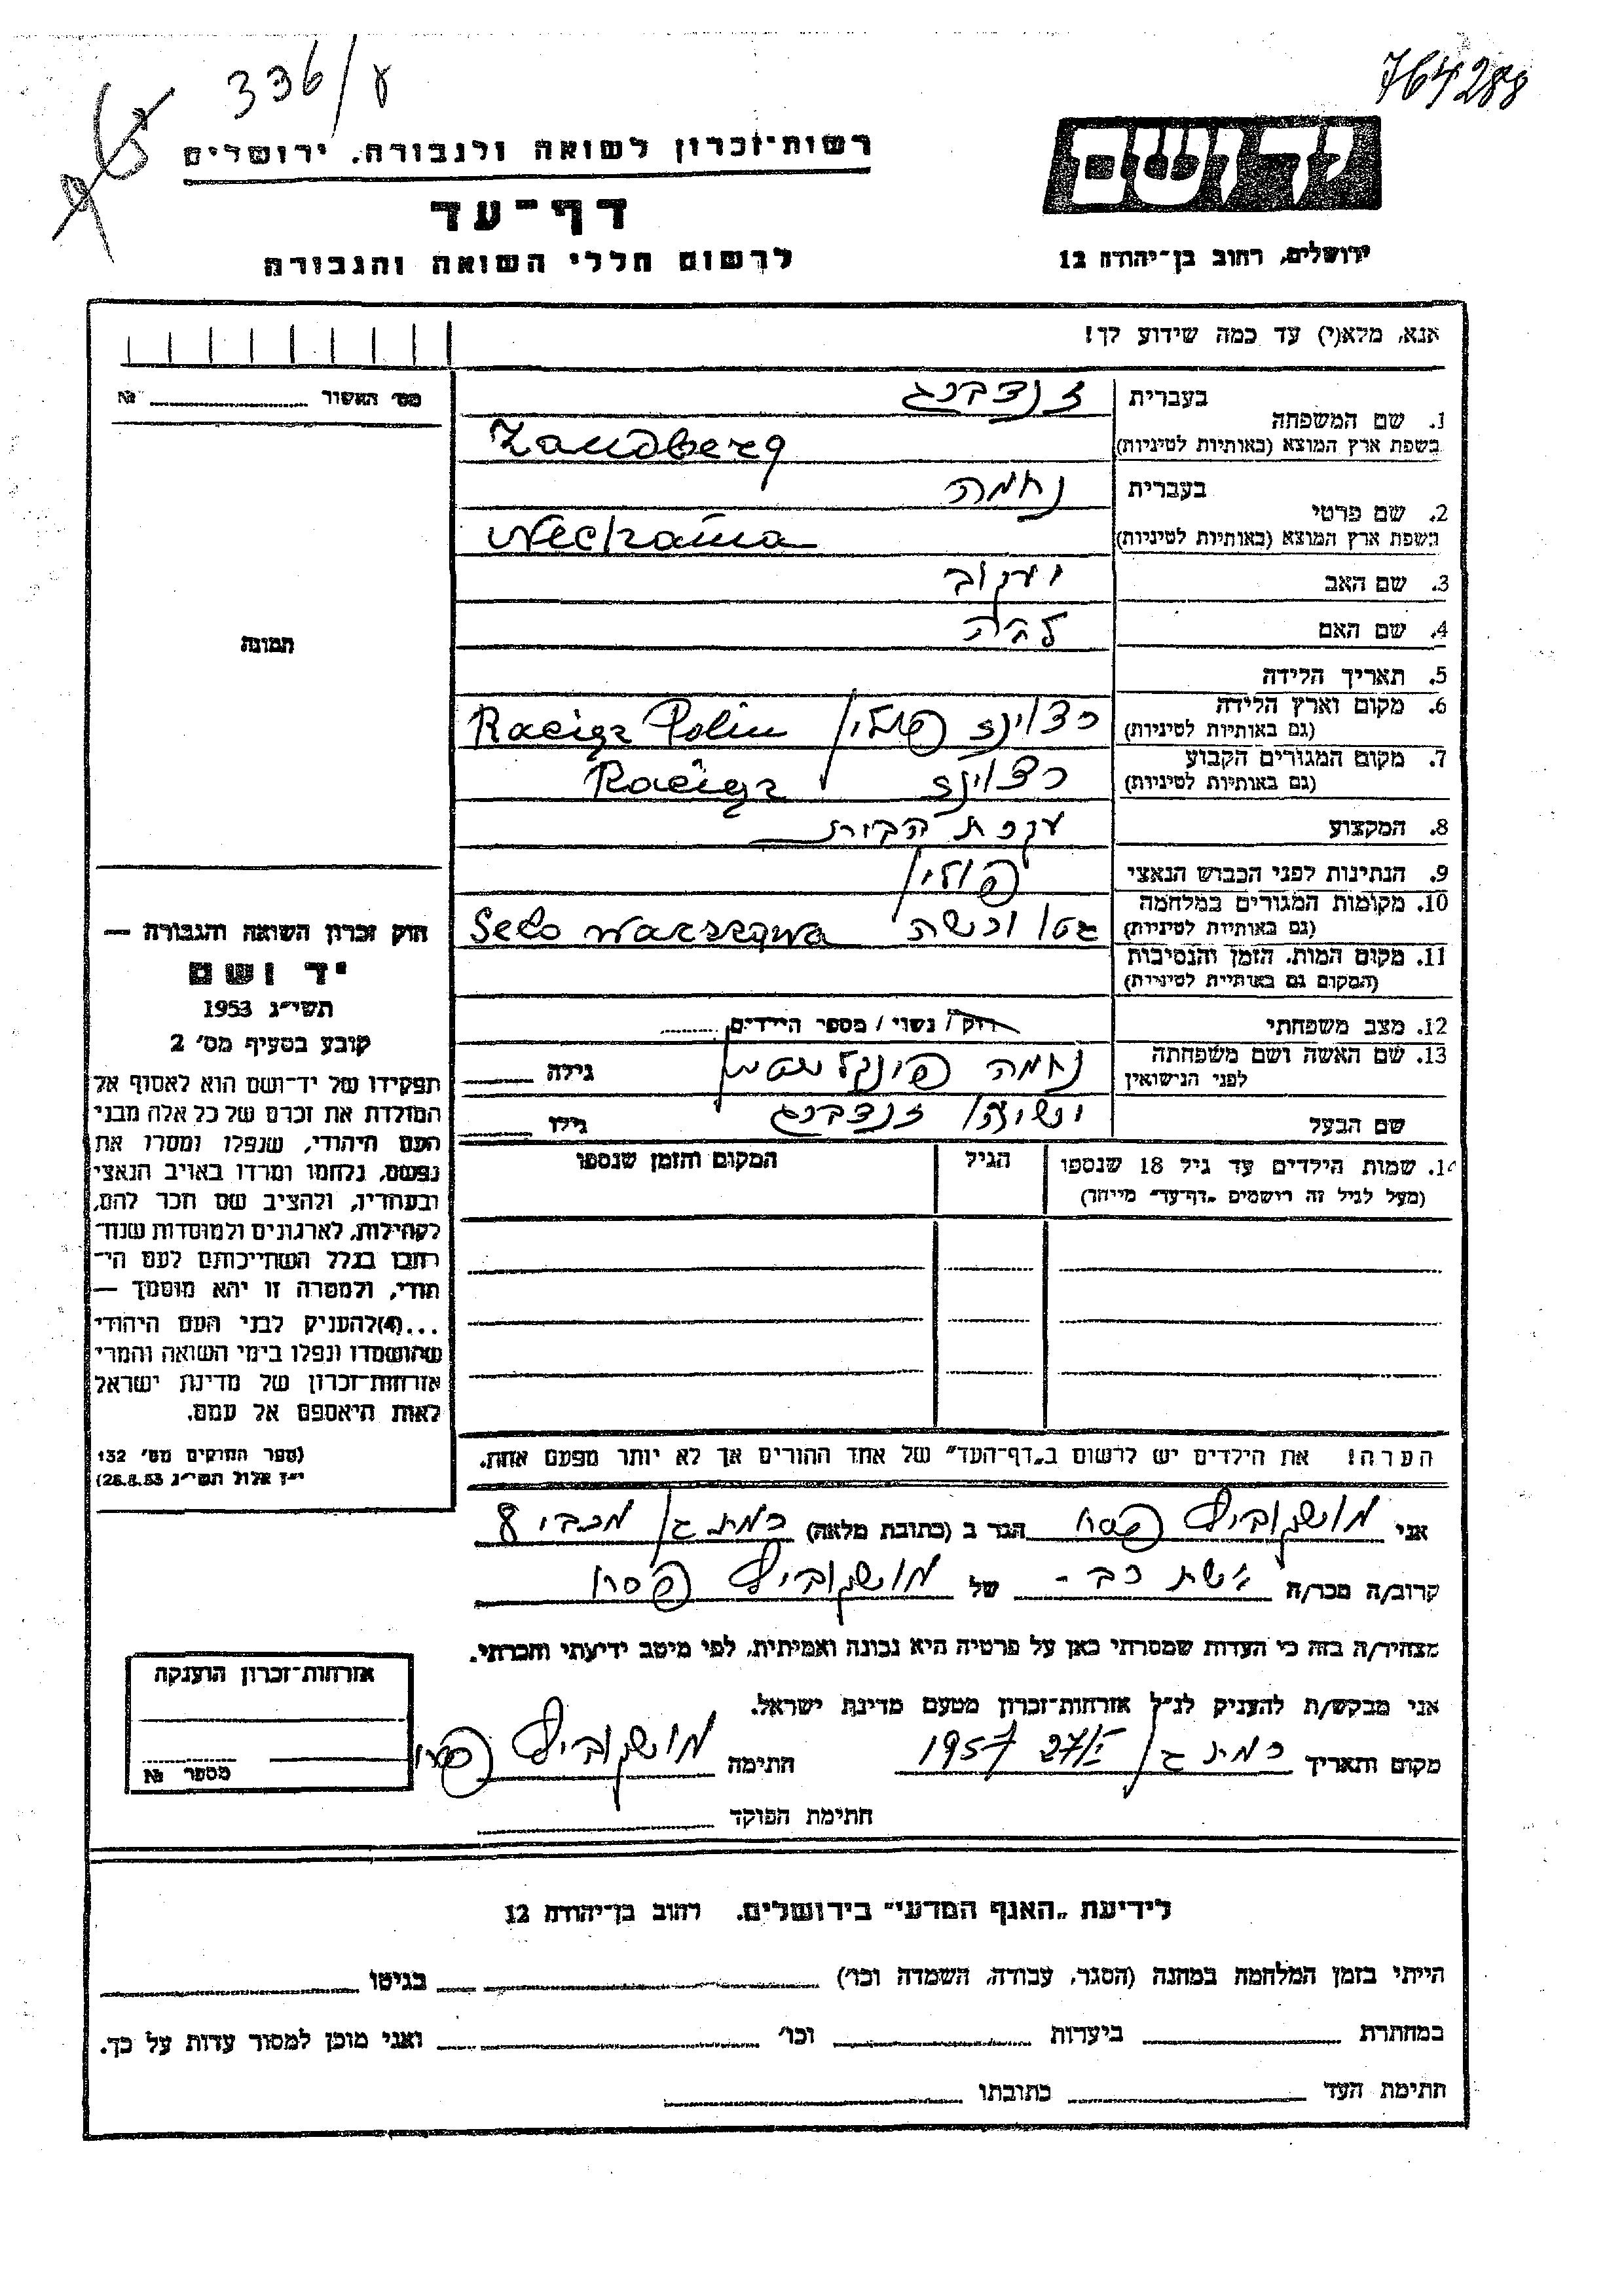 336/ע
764288
רשות־זכרון לשואה ולגבורה, ירושלים
דף־עד
לרשום חללי השואה והגבורה
יד ושם
ירושלים, רחוב בן־יהודה 12
אנא, מלא(י) עד כמה שידוע לך!
מס׳ האשור № 
1. שם המשפחה
בעברית
זנדברג
בשפת ארץ המוצא (באותיות לטיניות)
Zandberg
2. שם פרטי
בעברית
נחמה
בשפת ארץ המוצא (באותיות לטיניות)
Nechama
3. שם האב יעקוב
4. שם האם
5. תאריך הלידה
6. מקום וארץ הלידה
(גם באותיות לטיניות)
רצ׳ונז פולין Raciąz Polin
7. מקום המגורים הקבוע
(גם באותיות לטיניות)
רצ׳ונז Raciąz
8. המקצוע עקרת הבית
9. הנתינות לפני הכבוש הנאצי פולין
10. מקומות המגורים במלחמה
(גם באותיות לטיניות)
גטו ורשה Warszawa
11. מקום המות, הזמן והנסיבות
(המקום גם באותיות לטיניות)
12. מצב משפחתי רוק / נשוי / מספר הילדים
13. שם האשה ושם משפחתה
לפני הנישואין
נחמה גילה
שם הבעל זנדברג גילו
14. שמות הילדים עד גיל 18 שנספו
(מעל לגיל זה רושמים „דף־עד״ מיוחד)
הגיל
המקום והזמן שנספו
הערה! את הילדים יש לרשום ב„דף־העד״ של אחד ההורים אך לא יותר מפעם אחת.
תמונה
חוק זכרון השואה והגבורה —
יד ושם
תשי״ג 1953
קובע בסעיף מס׳ 2
תפקידו של יד־ושם הוא לאסוף אל
המולדת את זכרם של כל אלה מבני
העם היהודי, שנפלו ומסרו את
נפשם, נלחמו ומרדו באויב הנאצי
ובעוזריו, ולהציב שם וזכר להם,
לקהילות, לארגונים ולמוסדות שנח־
רבו בגלל השתייכותם לעם הי־
הודי, ולמטרה זו יהא מוסמך —
...(4)להעניק לבני העם היהודי
שהושמדו ונפלו בימי השואה והמרי
אזרחות־זכרון של מדינת ישראל
לאות היאספם אל עמם.
(ספר החוקים מס׳ 132
י״ז אלול תשי״ג 28.8.53)
אני מושקוביץ פסח הגר ב (כתובת מלאה) רמת גן מכבי 8
קרוב/ה מכר/ה של מושקוביץ פסח
מצהיר/ה בזה כי העדות שמסרתי כאן על פרטיה היא נכונה ואמיתית, לפי מיטב ידיעתי והכרתי.
אני מבקש/ת להעניק לנ״ל אזרחות־זכרון מטעם מדינת ישראל.
מקום ותאריך רמת גן 27/I 1957 חתימה מושקוביץ פסח
חתימת הפוקד
אזרחות־זכרון הוענקה
מספר №
לידיעת „האגף המדעי״ בירושלים, רחוב בן־יהודה 12
הייתי בזמן המלחמה במחנה (הסגר, עבודה, השמדה וכו׳) בגיטו
במחתרת ביערות וכו׳ ואני מוכן למסור עדות על כך.
חתימת העד כתובתו